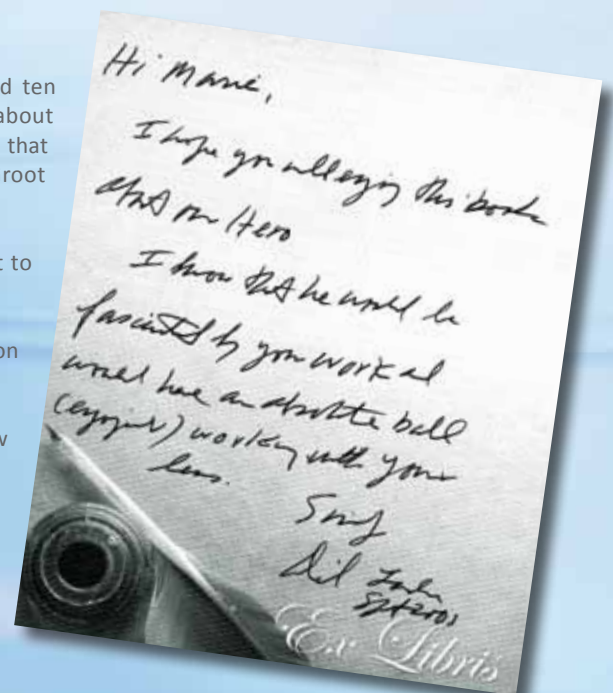 d ten
about
that
root
t to
on
w
Hi Marie,
I hope you will enjoy this book
about our Hero
I know that he would be
fascinated by your work and
would have an absolute ball
(enjoyed) working with your
lens.
Sept 2001
Ex Libris